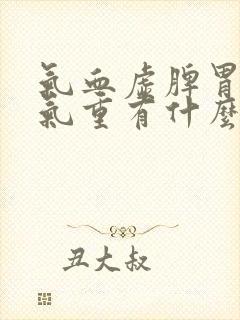 氣血虛脾胃
氣重有什麼
丑大叔